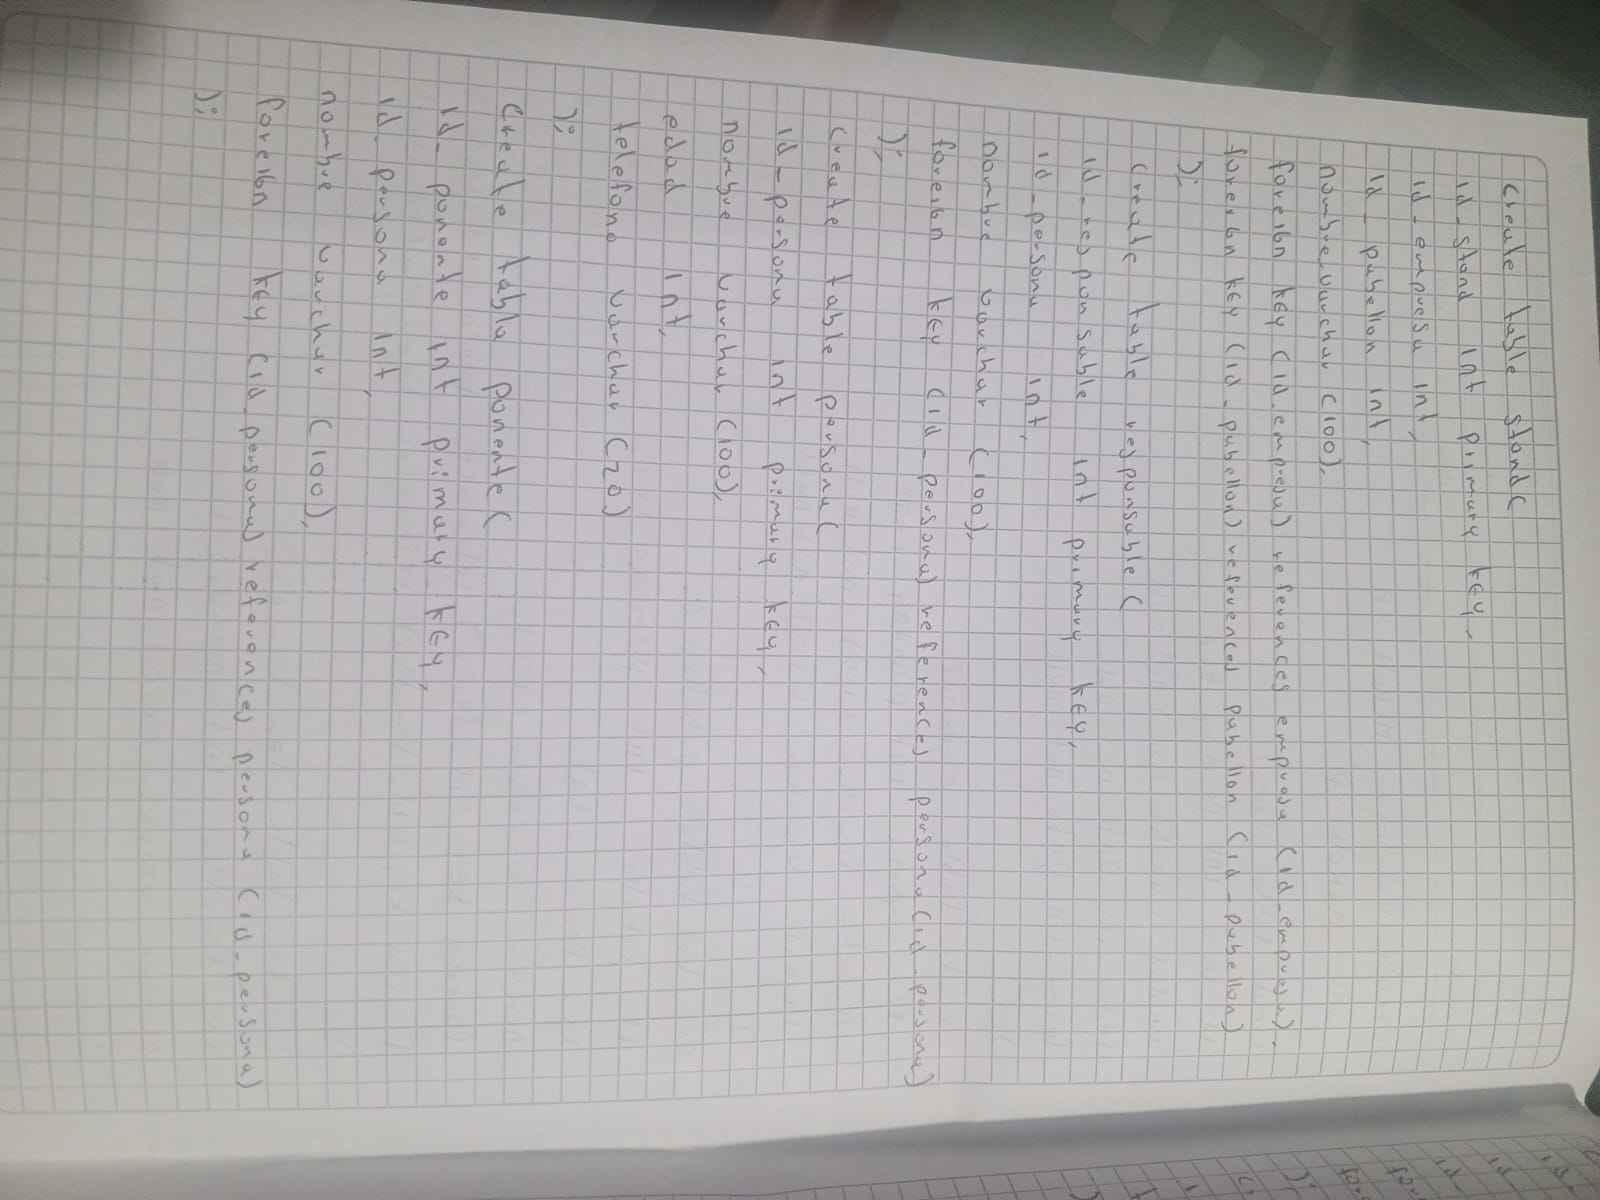 create table stand(
id_stand int primary key,
id_empresa int,
id_pabellon int,
nombre varchar (100),
foreign key (id_empresa) references empresa (id_empresa),
foreign key (id_pabellon) references pabellon (id_pabellon)
);
create table responsable (
id_responsable int primary key,
id_persona int,
nombre varchar (100),
foreign key (id_persona) references persona (id_persona)
);
create table persona (
id_persona int primary key,
nombre varchar (100),
edad int,
telefono varchar (20)
);
Create tabla ponente (
id_ponente int primary key,
id_persona int,
nombre varchar (100),
foreign key (id_persona) references persona (id_persona)
);